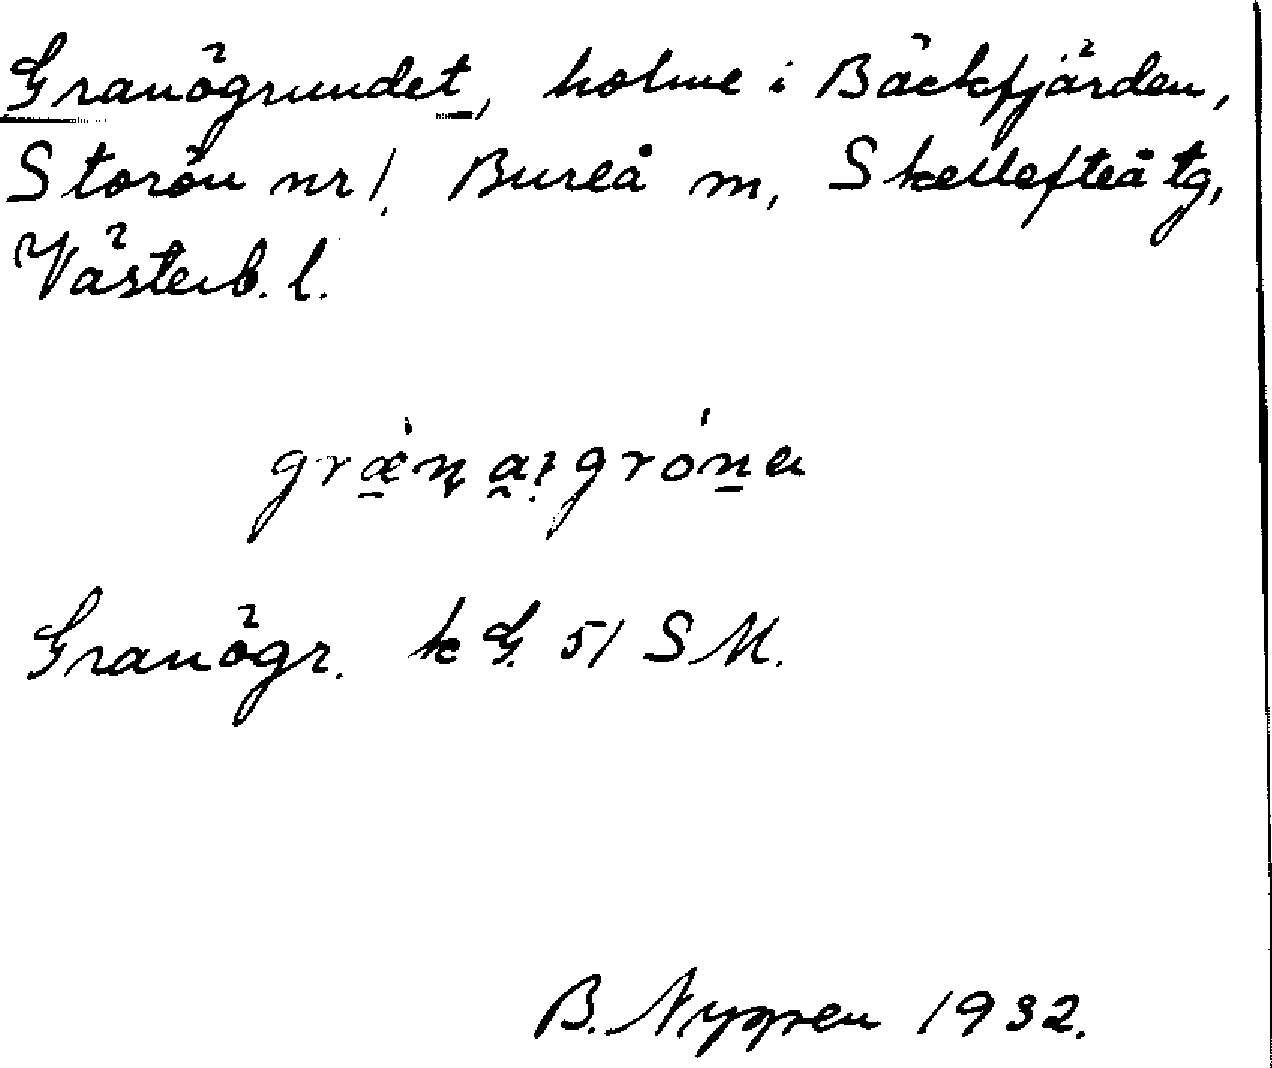 Granögrundet, holme i Bäckfjärden,
Storön nr 1, Bureå m, Skellefteå tg,
Västerb. l.
græ̱̀n a̰ꞏgróṉa
Granögr. k G. 51 SM.
B. Nygren 1932.